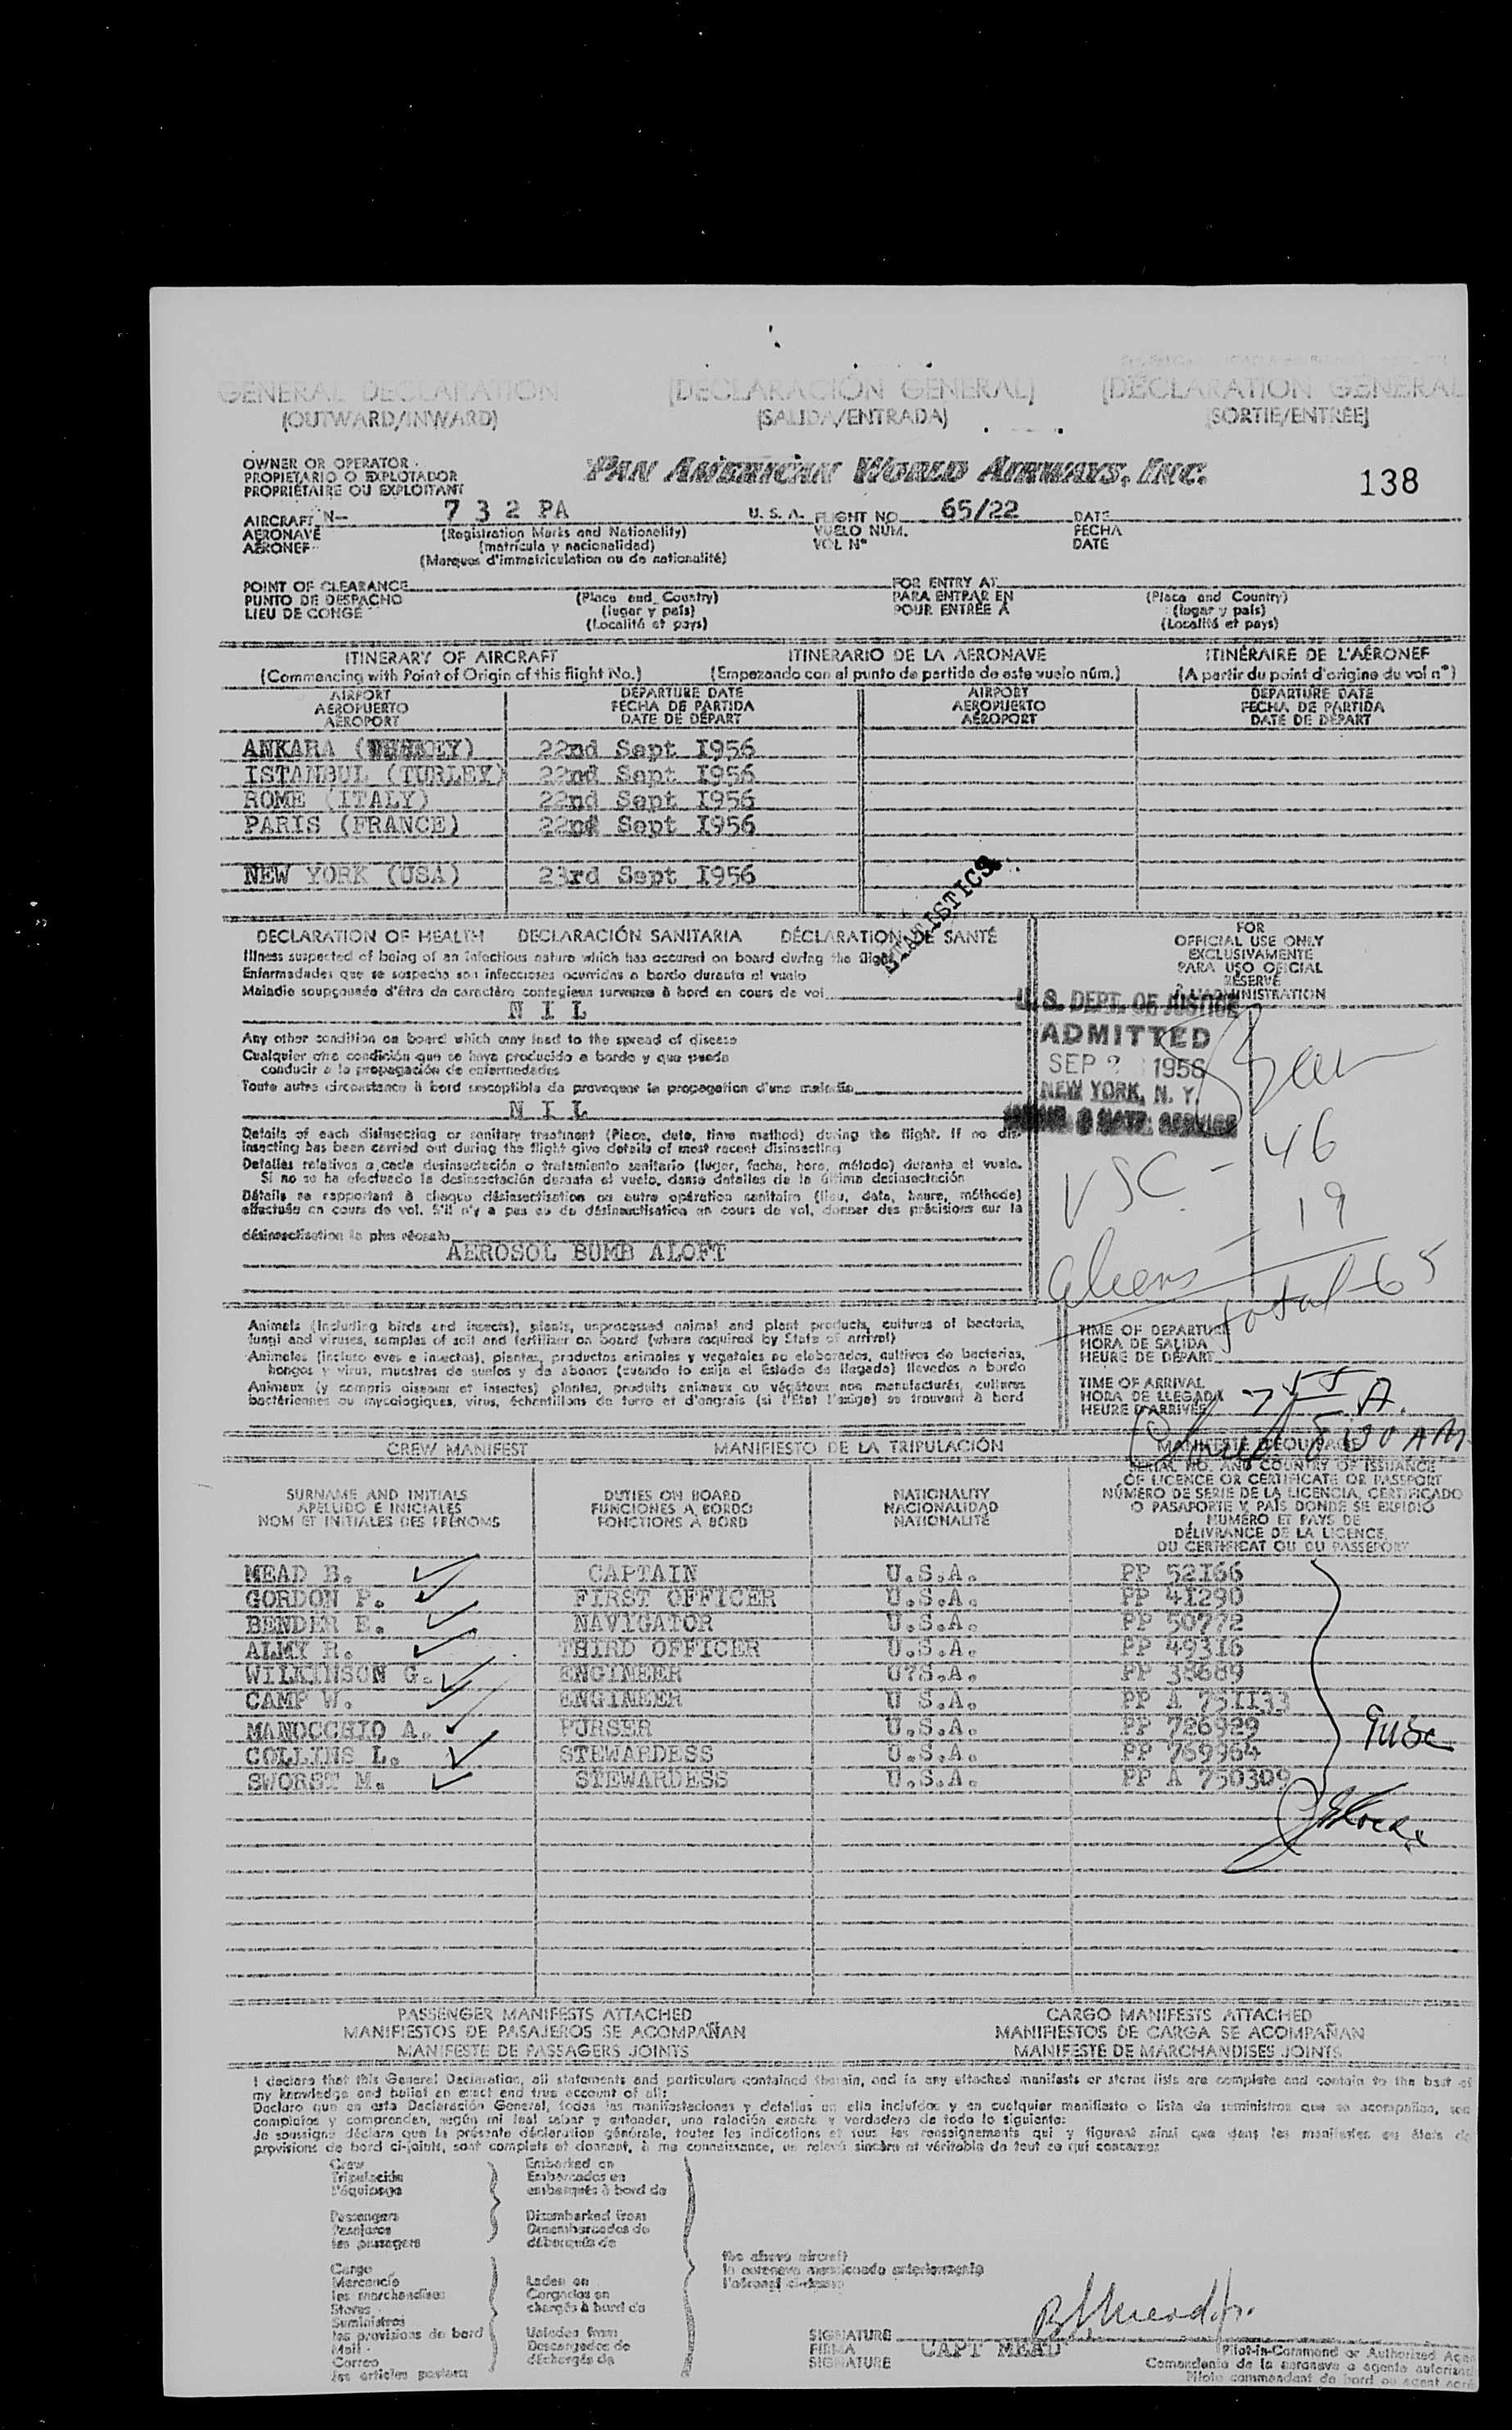 GENERAL DECLARATION (DECLARACIÓN GENERAL) (DÉCLARATION GÉNÉRAL
(OUTWARD/INWARD) (SALIDA/ENTRADA) (SORTIE/ENTRÉE)
OWNER OR OPERATOR
PROPIETARIO O EXPLOTADOR
PROPRIÉTAIRE OU EXPLOITANT
PAN AMERICAN WORLD AIRWAYS, INC.
138
AIRCRAFT N- 7 3 2 PA U. S. A. FLIGHT NO. 65/22 DATE
AERONAVE (Registration Marks and Nationality) VUELO NÚM. FECHA
AÉRONEF (matrícula y nacionalidad) VOL Nº DATE
(Marques d'immatriculation ou de nationalité)
POINT OF CLEARANCE FOR ENTRY AT
PUNTO DE DESPACHO (Place and Country) PARA ENTRAR EN (Place and Country)
LIEU DE CONGÉ (lugar y país) POUR ENTRÉE A (lugar y país)
(Localité et pays) (Localité et pays)
ITINERARY OF AIRCRAFT ITINERARIO DE LA AERONAVE ITINÉRAIRE DE L'AÉRONEF
(Commencing with Point of Origin of this flight No.) (Empezando con el punto de partida de este vuelo núm.) (A partir du point d'origine du vol nº)
AIRPORT DEPARTURE DATE AIRPORT DEPARTURE DATE
AEROPUERTO FECHA DE PARTIDA AEROPUERTO FECHA DE PARTIDA
AÉROPORT DATE DE DÉPART AÉROPORT DATE DE DÉPART
ANKARA ( ) 22nd Sept I956
ISTANBUL (TURLEY) 22nd Sept I956
ROME (ITALY) 22nd Sept I956
PARIS (FRANCE) 22nd Sept I956
NEW YORK (USA) 23rd Sept I956
STATISTICS
DECLARATION OF HEALTH DECLARACIÓN SANITARIA DÉCLARATION DE SANTÉ
Illness suspected of being of an infectious nature which has occured on board during the flight
Enfermedades que se sospecha son infecciosas ocurridas a bordo durante el vuelo
Maladie soupçonnée d'être de caractère contagieux survenue à bord en cours de vol
N I L
Any other condition on board which may lead to the spread of disease
Cualquier otra condición que se haya producido a bordo y que pueda
conducir a la propagación de enfermedades
Toute autre circonstance à bord susceptible de provoquer la propagation d'une maladie
N I L
Details of each disinsecting or sanitary treatment (Place, date, time method) during the flight. If no dis-
insecting has been carried out during the flight give details of most recent disinsecting
Detalles relativos a cada desinsectación o tratamiento sanitario (lugar, fecha, hora, método) durante el vuelo.
Si no se ha efectuado la desinsectación durante el vuelo, dense detalles de la última desinsectación
Détails se rapportant à chaque désinsectisation ou autre opération sanitaire (lieu, date, heure, méthode)
effectuée en cours de vol. S'il n'y a pas eu de désinsectisation en cours de vol, donner des précisions sur la
désinsectisation la plus récente
AEROSOL BUMB ALOFT
FOR
OFFICIAL USE ONLY
EXCLUSIVAMENTE
PARA USO OFICIAL
RÉSERVÉ
À L'ADMINISTRATION
U. S. DEPT. OF JUSTICE
ADMITTED
SEP 2 1956
NEW YORK, N. Y.
IMMIG. & NATZ. SERVICE
VSC - 46
aliens - 19
total - 65
Animals (including birds and insects), plants, unprocessed animal and plant products, cultures of bacteria,
fungi and viruses, samples of soil and fertilizer on board (where required by State of arrival)
Animales (incluso aves e insectos), plantas, productos animales y vegetales no elaborados, cultivos de bacterias,
hongos y virus, muestras de suelos y de abonos (cuando lo exija el Estado de llegada) llevados a bordo
Animaux (y compris oiseaux et insectes) plantes, produits animaux ou végétaux non manufacturés, cultures
bactériennes ou mycologiques, virus, échantillons de terre et d'engrais (si l'État l'exige) se trouvant à bord
TIME OF DEPARTURE
HORA DE SALIDA
HEURE DE DÉPART
TIME OF ARRIVAL
HORA DE LLEGADA
HEURE D'ARRIVÉE
7 55 A.
AM
CREW MANIFEST MANIFIESTO DE LA TRIPULACIÓN MANIFESTE D'ÉQUIPAGE
SURNAME AND INITIALS
APELLIDO E INICIALES
NOM ET INITIALES DES PRÉNOMS
DUTIES ON BOARD
FUNCIONES A BORDO
FONCTIONS À BORD
NATIONALITY
NACIONALIDAD
NATIONALITÉ
SERIAL NO. AND COUNTRY OF ISSUANCE
OF LICENCE OR CERTIFICATE OR PASSPORT
NÚMERO DE SERIE DE LA LICENCIA, CERTIFICADO
O PASAPORTE Y PAÍS DONDE SE EXPIDIÓ
NUMÉRO ET PAYS DE
DÉLIVRANCE DE LA LICENCE,
DU CERTIFICAT OU DU PASSEPORT
MEAD B. CAPTAIN U.S.A. PP 52I66
GORDON P. FIRST OFFICER U.S.A. PP 4I290
BENDER E. NAVIGATOR U.S.A. PP 50772
ALMY R. THIRD OFFICER U.S.A. PP 493I6
WILKINSON G. ENGINEER U?S.A. PP 38689
CAMP W. ENGINEER U S.A. PP A 75II33
MANOCCHIO A. PURSER U.S.A. PP 726929
COLLINS L. STEWARDESS U.S.A. PP 769964
SWORST M. STEWARDESS U.S.A. PP A 750309
9 USC
PASSENGER MANIFESTS ATTACHED CARGO MANIFESTS ATTACHED
MANIFIESTOS DE PASAJEROS SE ACOMPAÑAN MANIFIESTOS DE CARGA SE ACOMPAÑAN
MANIFESTE DE PASSAGERS JOINTS MANIFESTE DE MARCHANDISES JOINTS
I declare that this General Declaration, all statements and particulars contained therein, and in any attached manifests or stores lists are complete and contain to the best of
my knowledge and belief an exact and true account of all:
Declaro que en esta Declaración General, todas las manifestaciones y detalles en ella incluidos y en cualquier manifiesto o lista de suministros que se acompañan, son
completos y comprenden, según mi leal saber y entender, una relación exacta y verdadera de todo lo siguiente:
Je soussigné déclare que la présente déclaration générale, toutes les indications et tous les renseignements qui y figurent ainsi que dans les manifestes ou états de
provisions de bord ci-joints, sont complets et donnent, à ma connaissance, un relevé sincère et véritable de tout ce qui concerne:
Crew Embarked on
Tripulación Embarcados en
l'équipage embarqués à bord de
Passengers Disembarked from
Pasajeros Desembarcados de
les passagers débarqués de
the above aircraft
la aeronave mencionada anteriormente
l'aéronef ci-dessus
Cargo
Mercancía Laden on
les marchandises Cargados en
Stores chargés à bord de
Suministros
les provisions de bord Unladen from
Mail Descargados de
Correo déchargés de
les articles postaux
SIGNATURE
FIRMA CAPT MEAD
SIGNATURE
Pilot-in-Command or Authorized Agen
Comandante de la aeronave o agente autorizad
Pilote commandant de bord ou agent agré